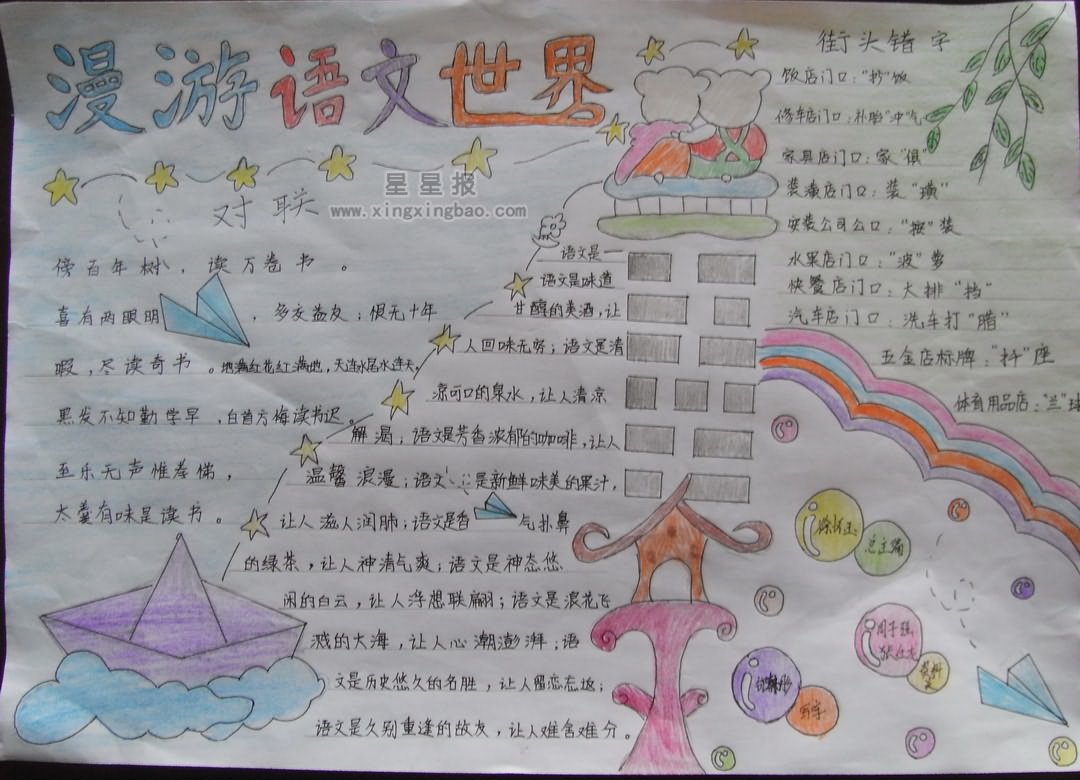 漫游语文世界
星星报
www.xingxingbao.com
对联
傍百年树，读万卷书。
喜有两眼明，多交益友；恨无十年
暇，尽读奇书。地满红花红满地，天连水尾水连天。
黑发不知勤学早，白首方悔读书迟。
至乐无声惟孝悌，
太羹有味是读书。
语文是
语文是味道
甘醇的美酒，让
人回味无穷；语文是清
凉可口的泉水，让人清凉
解渴；语文是芳香浓郁的咖啡，让人
温馨浪漫；语文是新鲜味美的果汁，
让人滋人润肺；语文是香气扑鼻
的绿茶，让人神清气爽；语文是神态悠
闲的白云，让人浮想联翩；语文是浪花飞
溅的大海，让人心潮澎湃；语
文是历史悠久的名胜，让人留恋忘返；
语文是久别重逢的故友，让人难舍难分。
街头错字
饭店门口："抄"饭
修车店门口：补胎"冲"气
家具店门口：家"俱"
装潢店门口：装"璜"
安装公司公口："按"装
水果店门口："波"萝
快餐店门口：大排"挡"
汽车店门口：洗车打"腊"
五金店标牌："扦"座
体育用品店："兰"球
总主编